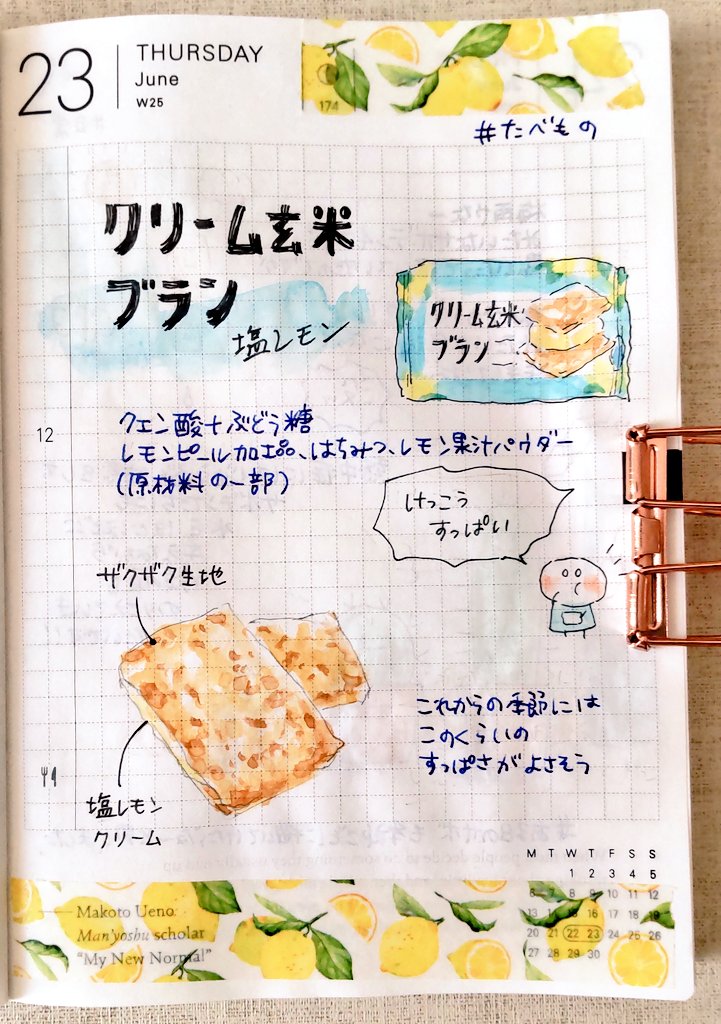 23
THURSDAY
June
W25
174
#たべもの
クリーム玄米
ブラン
塩レモン
クリーム玄米
ブラン
クエン酸+ぶどう糖
レモンピール加工品、はちみつ、レモン果汁パウダー
(原材料の一部)
12
けっこう
すっぱい
ザクザク生地
これからの季節には
このくらいの
すっぱさがよさそう
塩レモン
クリーム
M T W T F S S
1 2 3 4 5
6 7 8 9 10 11 12
13 14 15 16 17 18 19
20 21 22 23 24 25 26
27 28 29 30
Makoto Ueno
Man'yoshu scholar
"My New Normal"